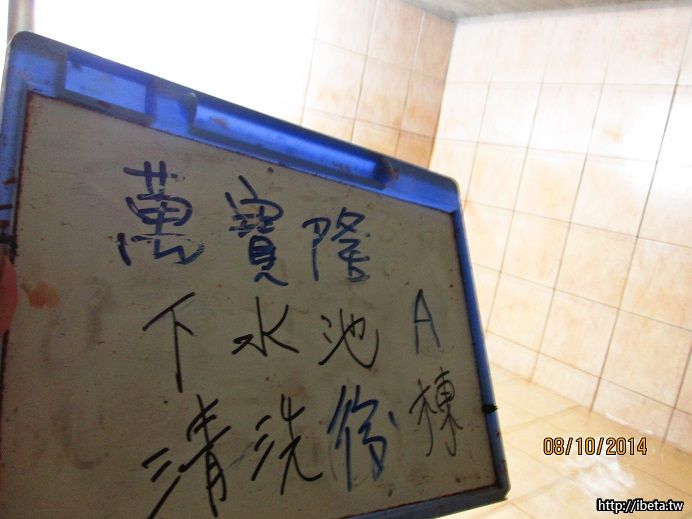 萬寶隆
下水池A
清洗後棟
08/10/2014
http://ibeta.tw